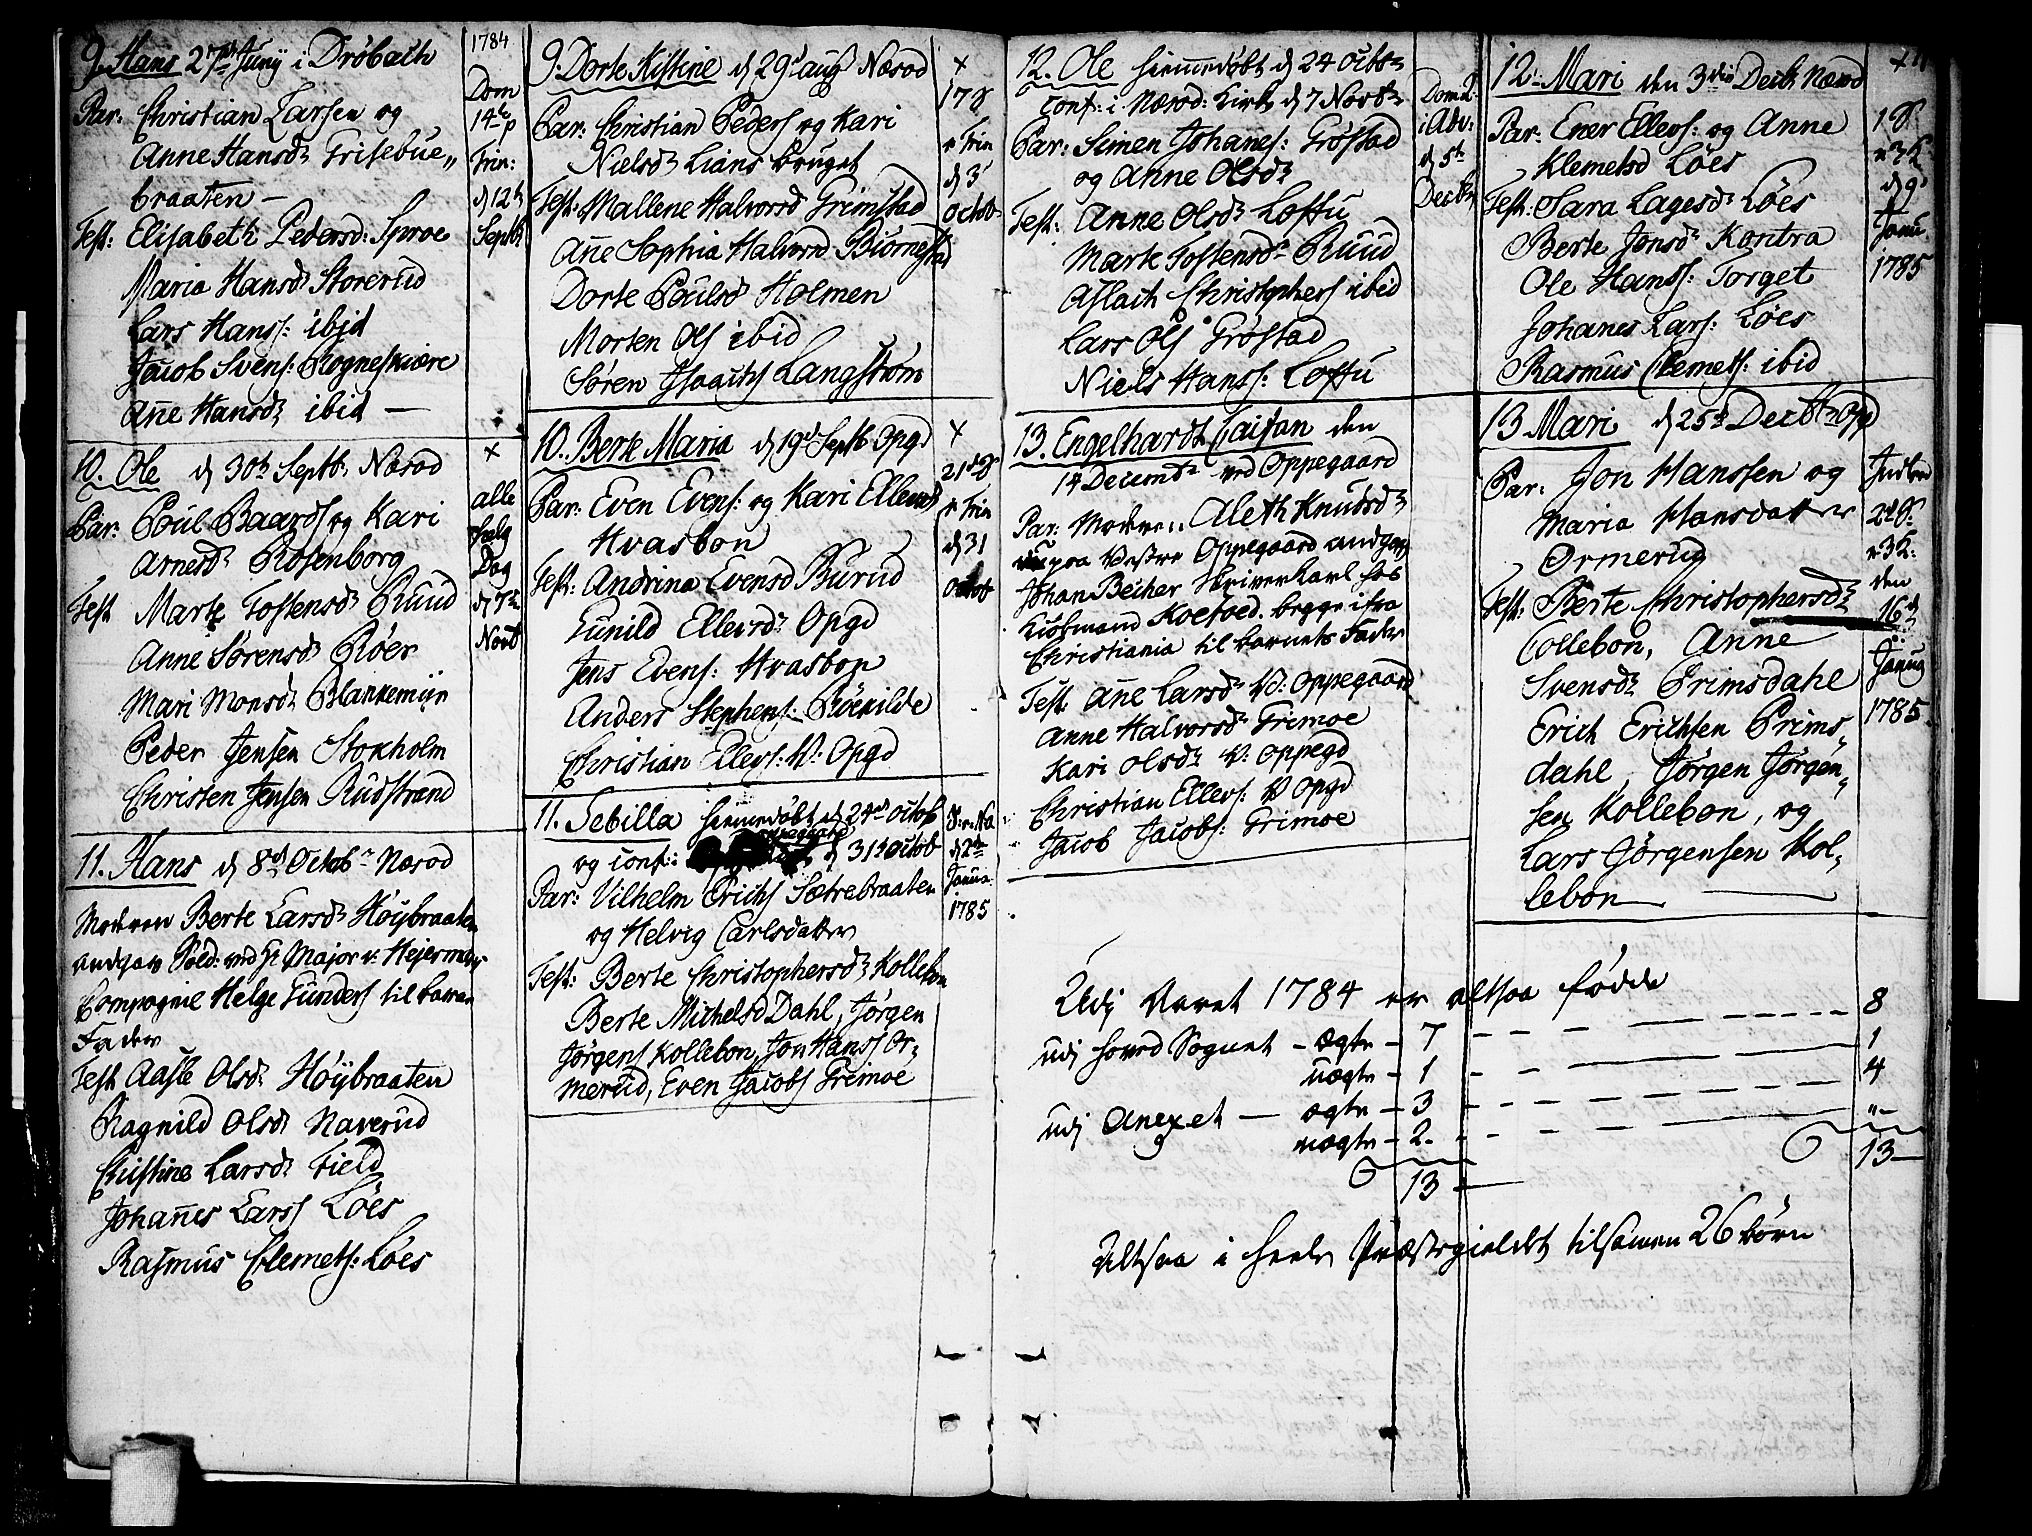 9. Hans 27de Juny i Drøbach
Par: Christian Larsen og
Anne Hansdr Grisebue„
braaten —
Test: Elisabeth Pedersd: Sproe
Maria Hansdr Storerud
Lars Hanss: ibid
Jacob Svens: Rogneskiære
Añe Hansdr ibid —
1784
Dom
14de p
Trin:
d 12te
Septbr
10. Ole d 30te Septbr Næsod
Par: Poul Baards og Kari
Arnesdr Rosenborg
Test Marte Tostensdr Ruud
Anne Sørensdr Røer
Mari Monsdr Blankemyr
Peder Jensen Stoxholm
Christen Jensen Rudstrand
×
alle
Helg
Dag
d 7de
Novb
11. Hans d 8de Octobr Næsod
Moderen Berte Larsdr Høybraaten
udgav Sold: ved Hr Major v: Hejermans
Compagnie Helge Gunders til barnets
Fader
Test Aasle Olsdr Høybraaten
Ragnild Olsdr Naverud
Christine Larsdr Field
Johañes Larss Løes
Rasmus Clemets: Løes
9. Dorte Kistine d 29de aug Næsod
Par: Christian Peders og Kari
Nielsdr Lians bruget
Test: Mallene Halvorsd Grimstad
Añe Sophia Halvorsd Biørnestad
Dorte Poulsd Holmen
Morten Ols ibid
Søren Isaachs Langstrøm
×
17 S
e Trin
d 3
Octob
10. Berte Maria d 19de Septb Opgd
Par: Even Evens: og Kari Ellevsdr
Hvasbon
Test: Andrina Evensd Burud
Gunild Ellevsdr Opgd
Jens Evens: Hvasbon
Anders Stephens: Røekilde
Christian Ellevs: V: Opgd
×
21de S
e Trin
d 31
Octob
11. Sebilla hiemmedøbt d 24de Octob
og conf: d 31te Octob
Par: Vilhelm Erichs Sætrebraaten
og Helvig Carlsdatter
Test: Berte Christophersdr Kollebon
Berte Michelsd Dahl, Jørgen
Jørgens Kollebon, Jon Hanss Or„
merud, Even Jacobs Grimoe
S: e: Na
d 2de
Janua
1785
12. Ole hiemmedøbt d 24 Octbr
conf: i Næsod: Kirk d 7 Novbr
Par: Simen Johanes: Grøstad
og Anne Olsdr
Test: Anne Olsdr Loftu
Marte Tostensdr Ruud
Aslach Christophers ibid
Lars Ols Grøstad
Niels Hanss: Loftu
Dom 2
i Adv:
d 5te
Decbr
13. Engelhardt Caisan den
14 Decembr ved Oppegaard
Par: Moderen Aleth Knudsdr
paa Vestre Oppegaard udgav
Johan Becher Skriverkarl hos
Kiøbmand Koefoed begge ifra
Christiania til barnets Fader
Test Añe Larsdr V: Oppegaard
Anne Halvorsdr Grimoe
Kari Olsdr V: Oppegd
Christian Ellevs: V Opgd
Jacob Jacobs: Grimoe
12. Mari den 3die Decbr Næsod
Par: Ener Ellevs: og Anne
Klemetsd Løes
Test: Sara Lagesdr Løes
Berte Jonsdr Kontra
Ole Hanss: Torget
Johanes Lars: Løes
Rasmus Clemets: ibid
×
1 S.
e 3 K
d 9
Janu.
1785
13 Mari d 25de Decbr Opp
Par. Jon Hanssen og
Maria Hansdatter
Ormerud
Test: Berte Christophersdr
Collebon, Anne
Svensdr Grimsdahl
Erich Erichsen Grims„
dahl, Jørgen Jørgen„
sen Kollebon, og
Lars Jørgensen Kol„
lebon —
2d S
e 3 K:
den
16de
Janua
1785
Udj Aaret 1784 er altsaa fødde
udj hoved Sognet — ægte — 7 — 8
uægte — 1 — 1
udj Anexet — ægte — 3 — 4
uægte — 2 — „
13 — 13 —
Altsaa i heele Præstegieldet tilsamen 26 børn